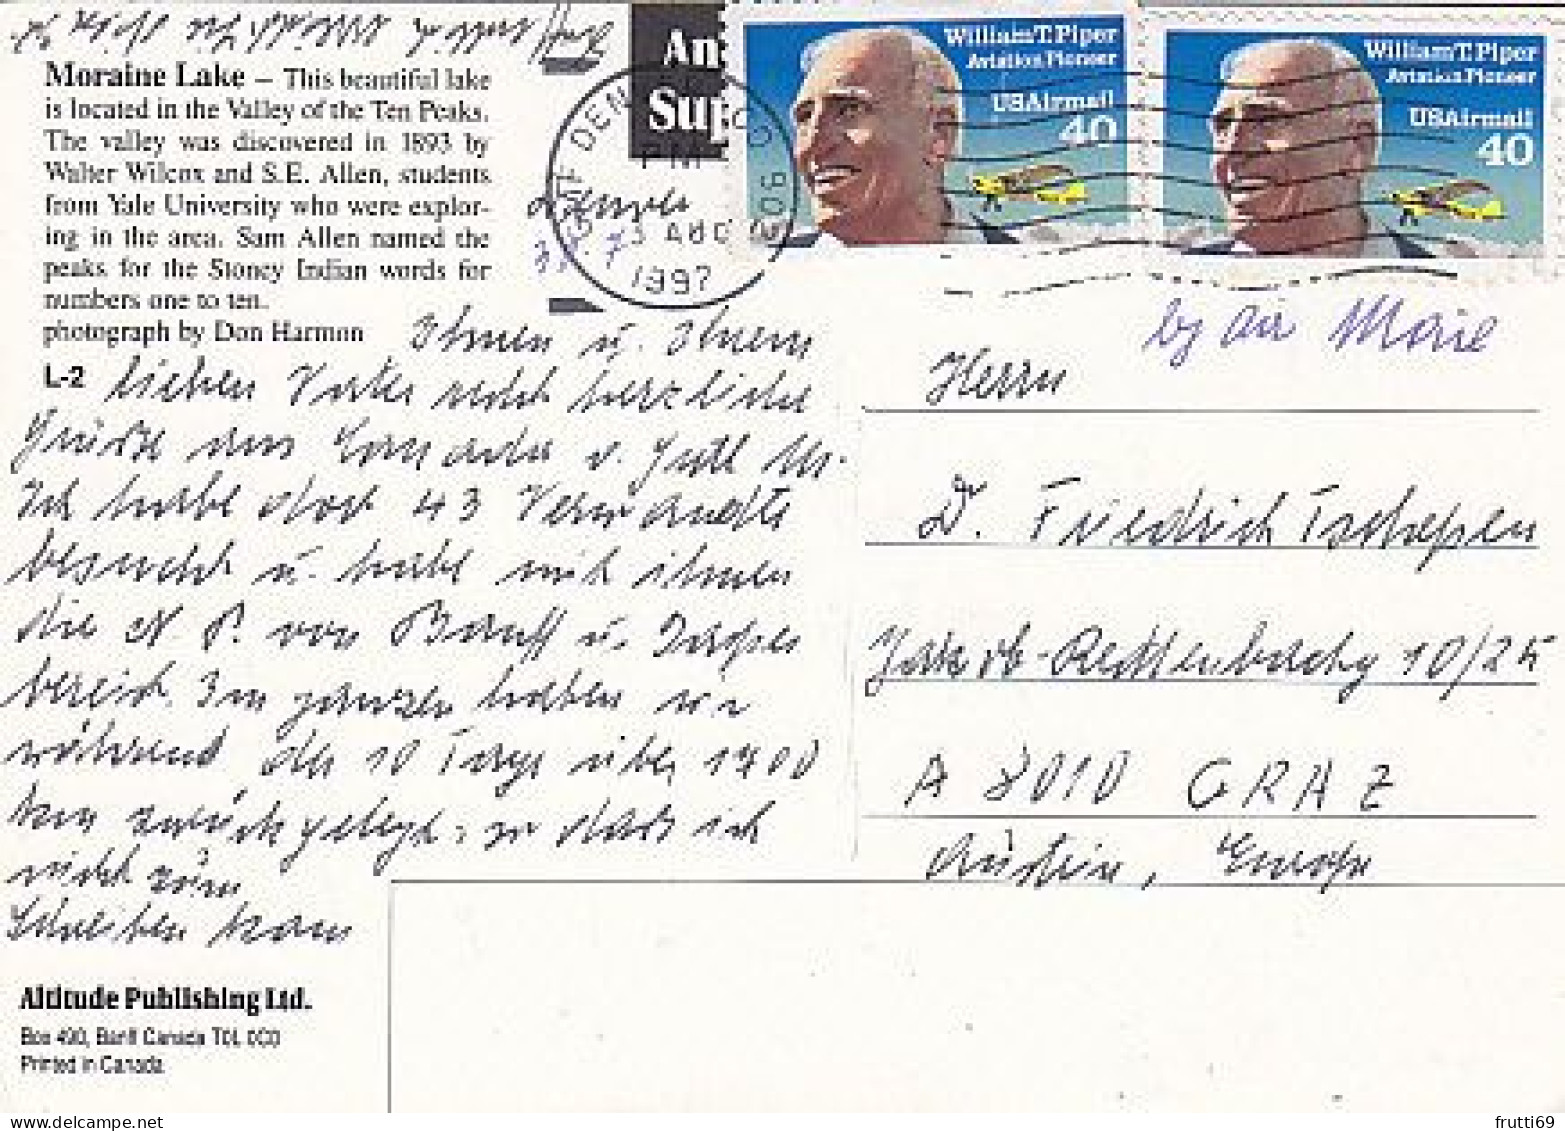 Moraine Lake – This beautiful lake
is located in the Valley of the Ten Peaks.
The valley was discovered in 1893 by
Walter Wilcox and S.E. Allen, students
from Yale University who were explor-
ing in the area. Sam Allen named the
peaks for the Stoney Indian words for
numbers one to ten.
photograph by Don Harmon
L-2
An
Sup
DEN CO
PM
3 AUG
1997
William T. Piper
Aviation Pioneer
USAirmail
40
William T. Piper
Aviation Pioneer
USAirmail
40
Denver
by air Mail
Ihnen u. Ihrem
lieben Vater recht herzliche
Grüße aus
Ich habe dort 43 Verwandte
besucht u. habe mit ihnen
die N. P. von Banff u. Jasper
bereist. Im ganzen haben wir
während der 10 Tage über 1700
km zurückgelegt, so dass ich
nicht zum
Schreiben kam
Herrn
Dr. Friedrich
10/25
A 8010 GRAZ
Austria, Europe
Altitude Publishing Ltd.
Box 490, Banff Canada T0L 0C0
Printed in Canada
frutti69